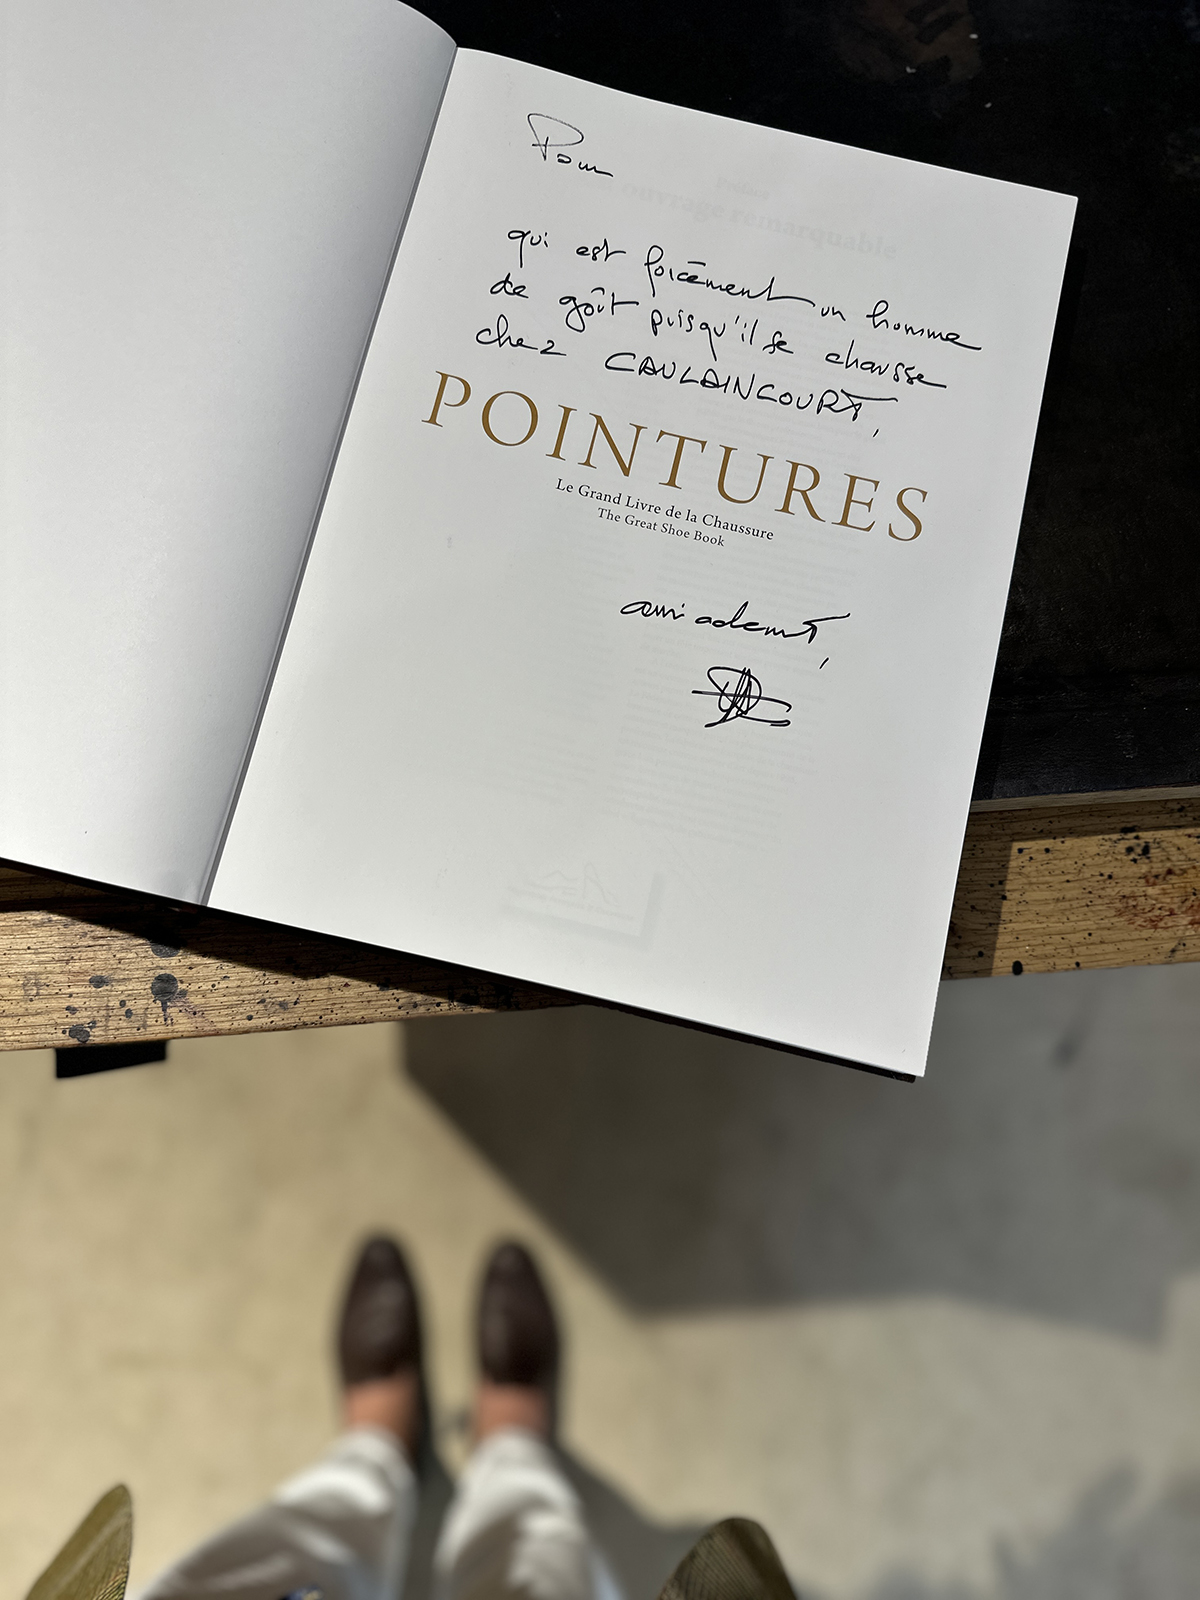 Pour
qui est forcément un homme
de goût puisqu'il se chausse
chez CAULAINCOURT,
POINTURES
Le Grand Livre de la Chaussure
The Great Shoe Book
amicalement,